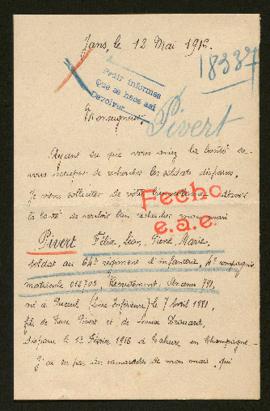 Jans, le 12 Mai 1916.
18337
Pedir informes
Que se hace así
Devolver
Pivert
Monseigneur,
Ayant su que vous aviez la bonté de
vous occuper de rechercher les soldats disparus,
Je viens solliciter de votre
la bonté de vouloir bien rechercher mon mari
Fecho
e.a.e.
Pivert Félix, Jean, Pierre, Marie,
soldat au 64e régiment d'infanterie, 6e compagnie
matricule 012705, Recrutement, Ancenis 791,
né à Puceul (Loire Inférieure) le 7 Avril 1881,
fils de Pierre Pivert et de Louise Drouard,
disparu le 1er Février 1916 à Tahure en Champagne
J'ai su par les camarades de mon mari, qui